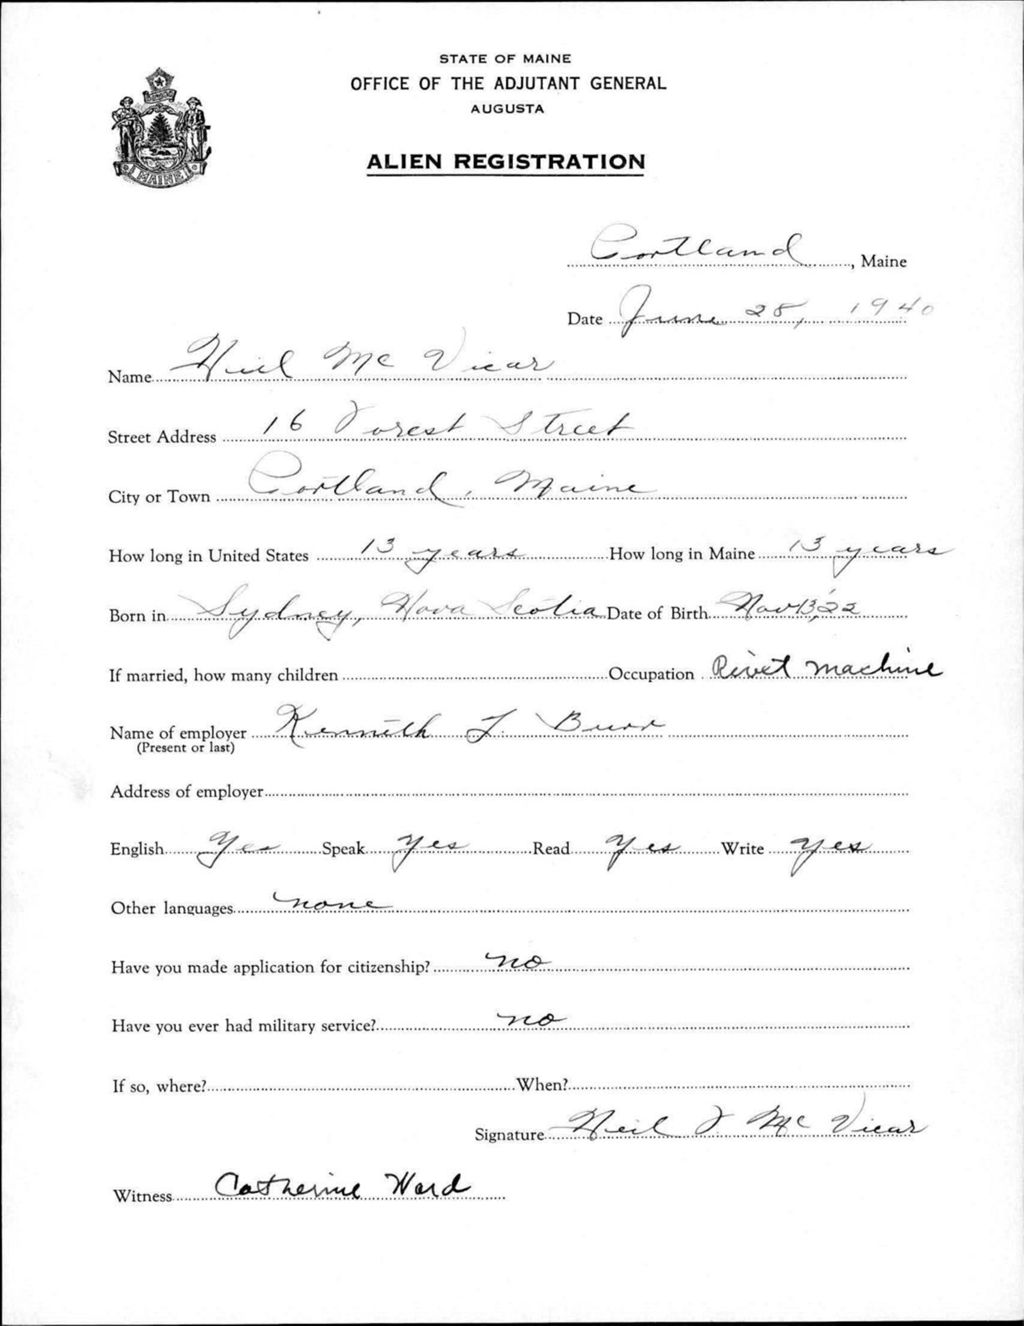 STATE OF MAINE
OFFICE OF THE ADJUTANT GENERAL
AUGUSTA
ALIEN REGISTRATION
MAINE
Portland, Maine
Date June 28, 1940
Name Neil Mc Vicar
Street Address 16 Forest Street
City or Town Portland, Maine
How long in United States 13 years How long in Maine 13 years
Born in Sydney, Nova Scotia Date of Birth Nov 13, '22
If married, how many children Occupation Rivet machine
Name of employer Kenneth L Burr
(Present or last)
Address of employer
English Yes Speak Yes Read Yes Write Yes
Other languages none
Have you made application for citizenship? no
Have you ever had military service? no
If so, where? When?
Signature Neil J Mc Vicar
Witness Catherine Ward